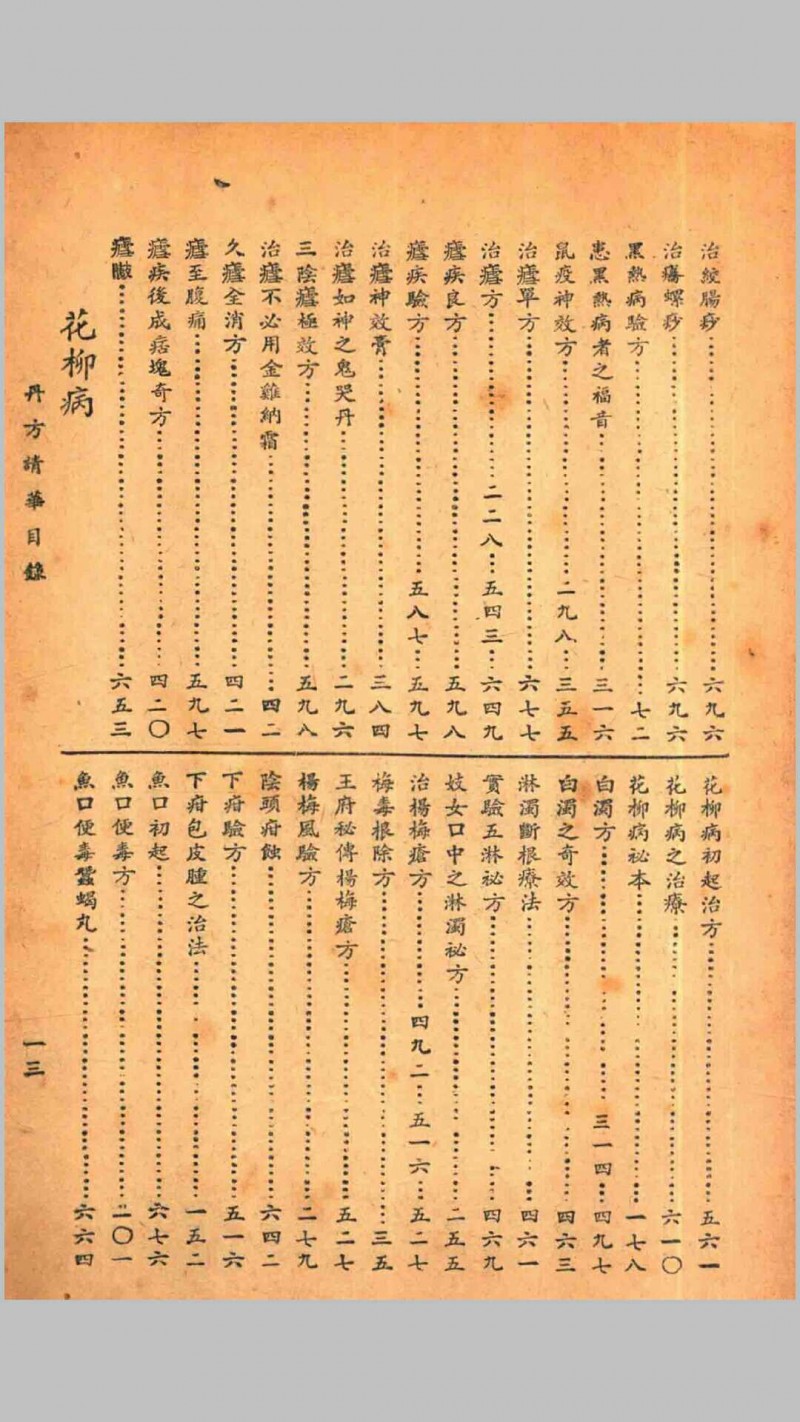 治絞腸痧……六九六
治癟螺痧……六九六
黑熱病驗方……七二
患黑熱病者之福音……三一六
鼠疫神效方……二九八…三五五
治瘧單方……六七七
治瘧方……二二八…五四三…六四九
瘧疾良方……五九八
瘧疾驗方……五八七…五九七
治瘧神效膏……三八四
治瘧如神之鬼哭丹……二九六
三陰瘧極效方……五九八
治瘧不必用金雞納霜……四二
久瘧全消方……四二一
瘧至腹痛……五九七
瘧疾後成痞塊奇方……四二〇
瘧瞰……六五三
花柳病
花柳病初起治方……五六一
花柳病之治療……六一〇
花柳病祕本……一七八
白濁方……三一四…四九七
白濁之奇效方……四六三
淋濁斷根療法……四六一
實驗五淋祕方……四六九
妓女口中之淋濁祕方……二五五
治楊梅瘡方……四九二…五一六…五二七
梅毒根除方……三五
王府秘傳楊梅瘡方……五二七
楊梅風驗方……二七九
陰頭疳蝕……六四二
下疳驗方……五一六
下疳包皮腫之治法……一五二
魚口初起……六七六
魚口便毒方……二〇一
魚口便毒蠶蝎丸……六六四
丹方請華目錄
一三